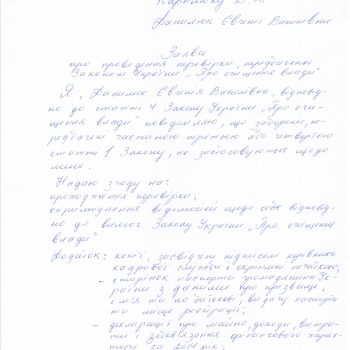 Данилюк Євгенії Василівни
Заява
про проведення перевірки, передбаченої
Законом України „Про очищення влади"
Я, Данилюк Євгенія Василівна, відповід-
но до статті 4 Закону України „Про очи-
щення влади" повідомляю, що заборони, пе-
редбачені частиною третьою або четвертою
статті 1 Закону, не застосовуються щодо
мене.
Надаю згоду на:
проходження перевірки;
оприлюднення відомостей щодо себе відповід-
но до вимог Закону України „Про очищення
влади"
Додаток: копії, засвідчені підписом керівника
кадрової служби і скріплені печаткою:
- сторінок паспорта громадянина Ук-
раїни з даними про прізвище,
ім'я та по батькові, видачу паспорта
та місце реєстрації;
- декларації про майно, доходи, витра-
ти і зобов'язання фінансового харак-
теру за 2014 рік;